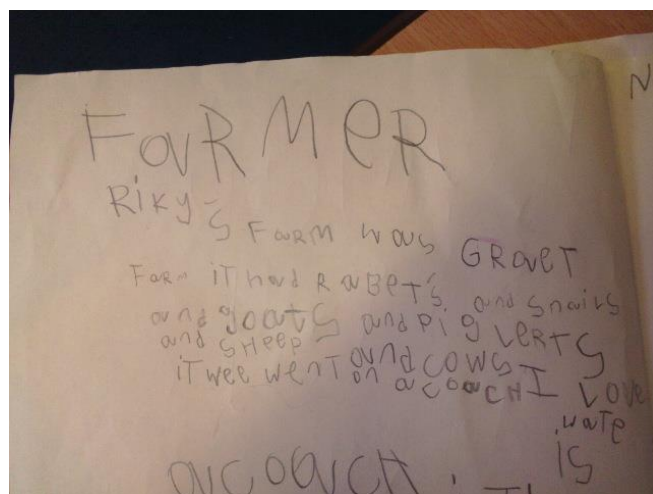 FaRMeR
N
RiKy-
s FaRM was GRaeT
FaRM iT had RaBeT's and snails
and goatS and PigLeRTS
and SHeePS and cows
iT wee wenT on a coacH I Love
waTe
is
a coacH.